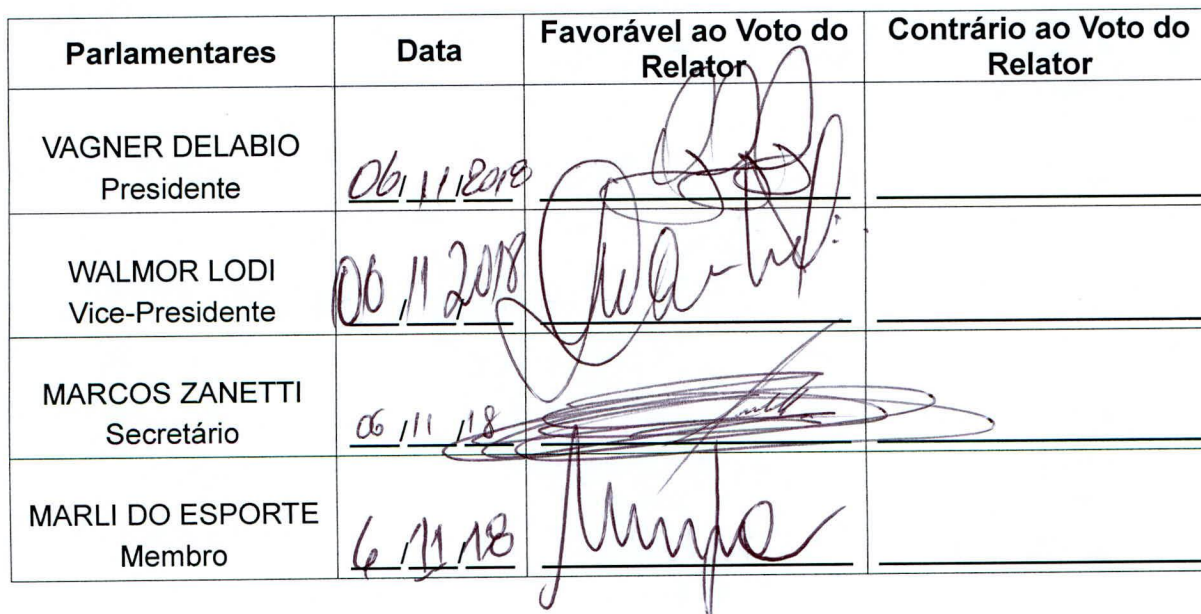 Parlamentares Data Favorável ao Voto do Relator Contrário ao Voto do Relator
VAGNER DELABIO
Presidente 06/11/2018
WALMOR LODI
Vice-Presidente 06/11/2018
MARCOS ZANETTI
Secretário 06/11/18
MARLI DO ESPORTE
Membro 6/11/18